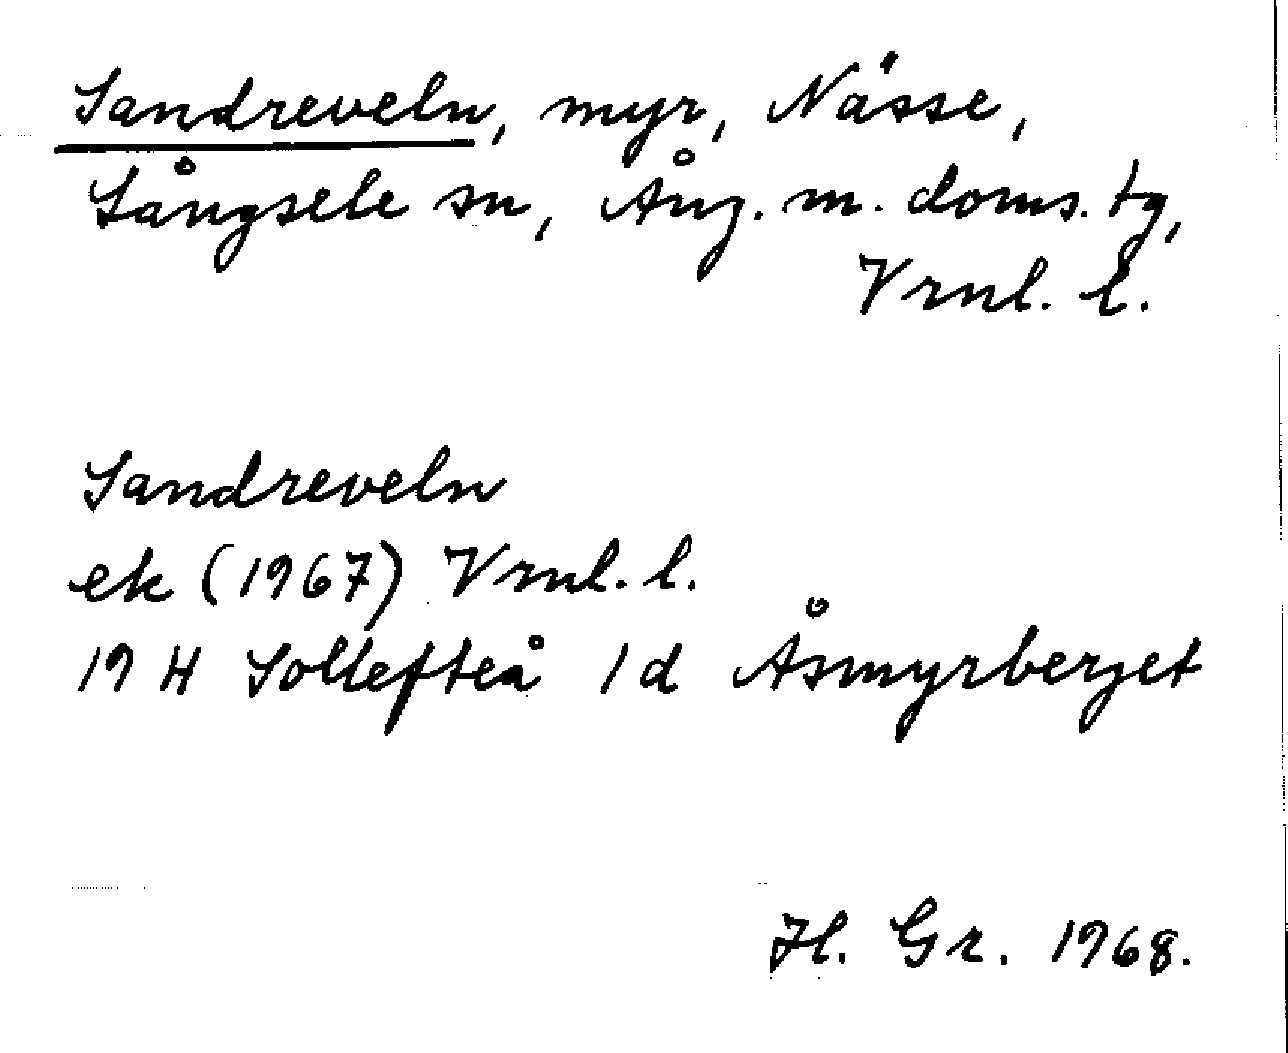 Sandreveln, myr, Nässe,
Långsele sn, Ång. m. doms. tg,
Vrnl. l.
Sandreveln
ek (1967) Vrnl. l.
19 H Sollefteå 1d Åsmyrberget
Hl. Gr. 1968.